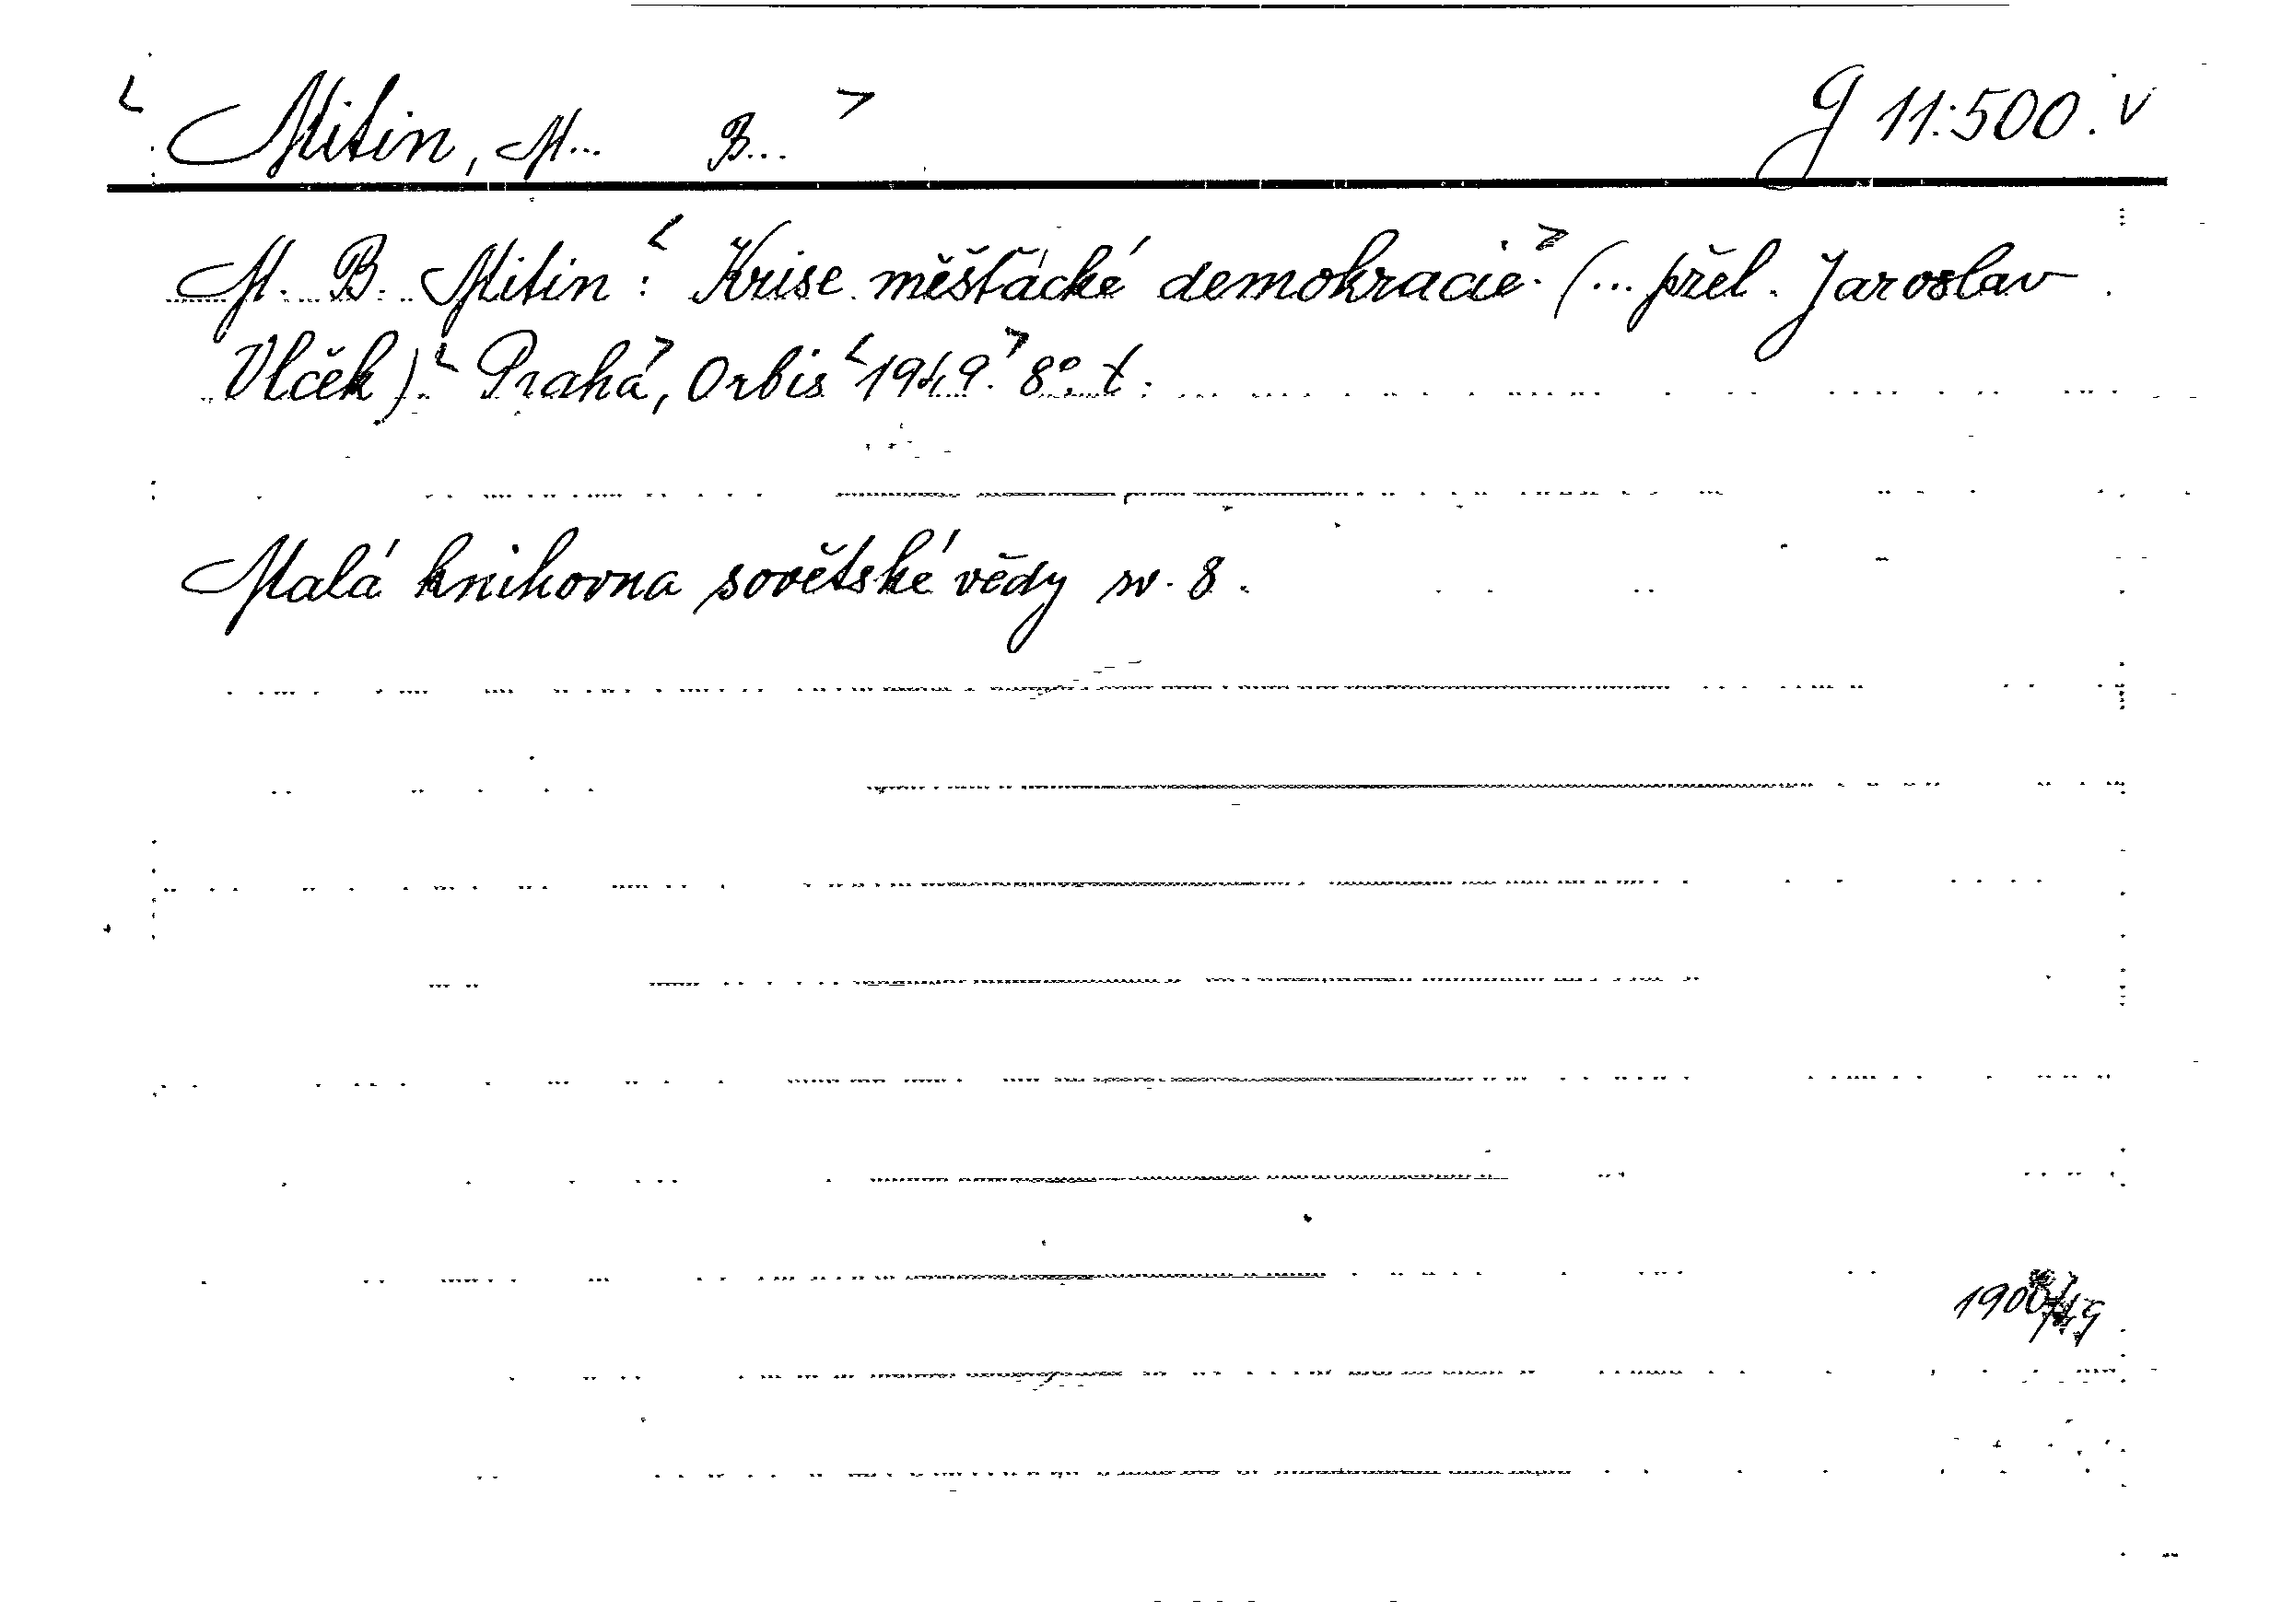 < Mitin, M... B... > G 11.500. v
M. B. Mitin: < Krise měšťácké demokracie. > (... přel. Jaroslav
Vlček). < Praha >, Orbis < 1949. > 8°. t.
Malá knihovna sovětské vědy sv. 8.